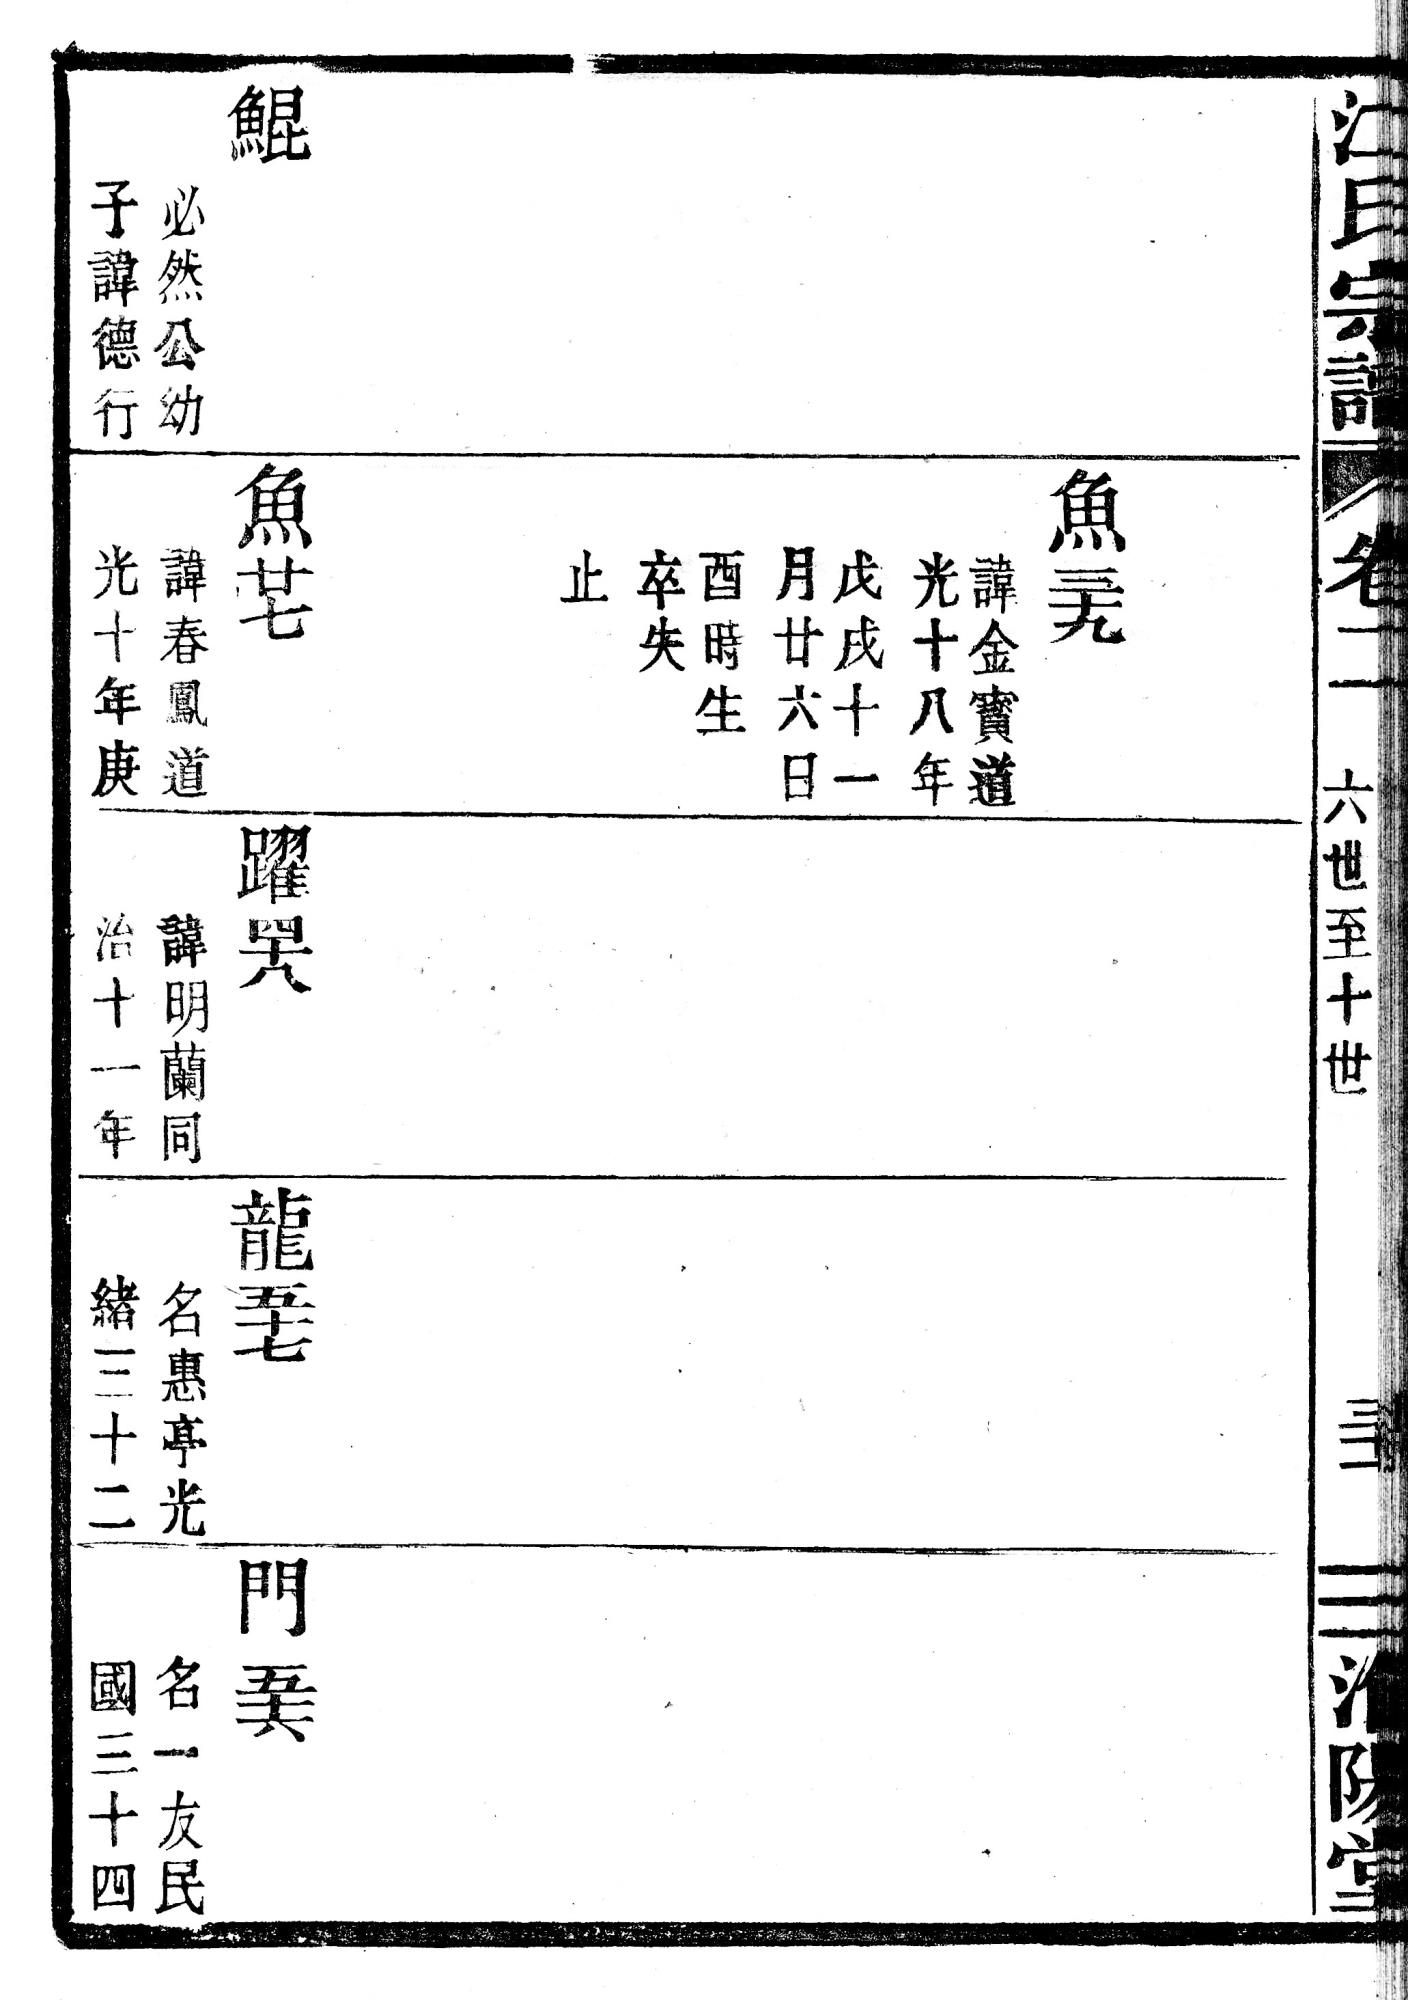 江氏宗譜
卷二
六世至十世
三十一
淮陽堂
鯤
必然公幼
子諱德行
魚三十九
諱金寶道
光十八年
戊戌十一
月廿六日
酉時生
卒失
止
魚廿七
諱春鳳道
光十年庚
躍四十八
諱明蘭同
治十一年
龍五十七
名惠亭光
緒三十二
門五十六
名一友民
國三十四